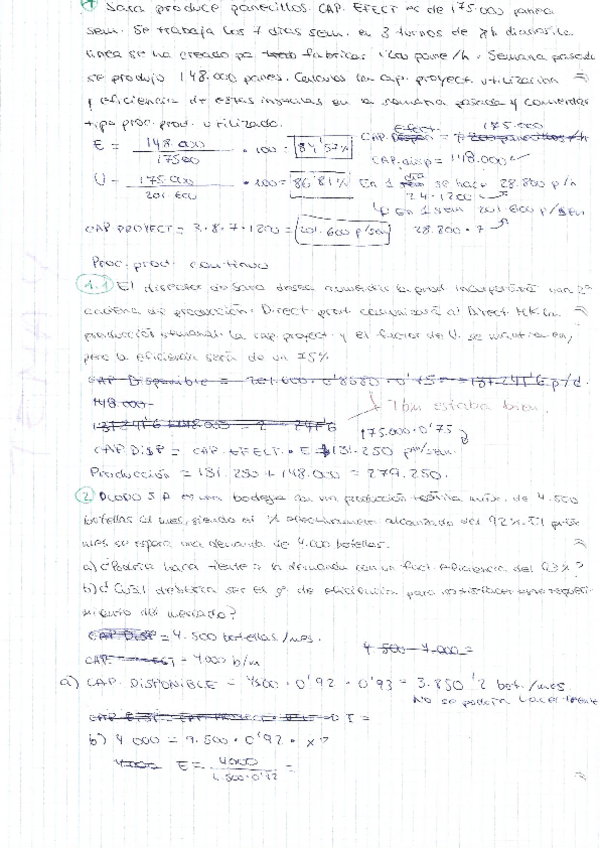 Sara produce panecillos. CAP. EFECT es de 175.000 panes
sem. Se trabaja los 7 días sem. en 3 turnos de 8h diarias. La
línea se ha creado pa fabricar 1200 pane/h. Semana pasada
se produjo 148.000 panes. Calculos la cap. proyect. utilización
y eficiencia de estas instalas en la semana pasada y comentar
tipo proc. prod. utilizado.
E = 148.000 / 17500 · 100 = 84'57%
Efect. 175.000
CAP. disp = 148.000
U = 175.000 / 201 600 · 100 = 86'81% En 1 día se hace 28.800 p/h
24·1200
En 1 sem 201 600 p/sem
CAP PROYECT = 3·8·7·1200 = 201.600 p/sem 28.800·7
Proc. prod. continuo
4.1 El director de Sara desea aumentar la prod. incorporará una 2ª
cadena de producción. Direct. prod. comunicará al Direct MK la
producción semanal. La cap. proyect. y el factor de U. se mantienen,
pero la eficiencia será de un 75%
CAP Disponible = 201.600 · 0'8680 · 0'75 = 131.241'6 p/d.
148.000
Tbm estaba bien.
175.000·0'75
CAP DISP = CAP. EFECT. · E = 131.250 pan/sem.
Producción = 131.250 + 148.000 = 279.250.
2 S A es una bodega con una producción teórica máx. de 4.500
botellas al mes, siendo el % efectivamente alcanzado del 92%. El próx.
mes se espera una demanda de 4.000 botellas.
a) ¿Podría hacer frente a la demanda con un fact. eficiencia del 93%?
b) ¿Cuál debería ser el gº de eficiencia para satisfacer ese requeri-
miento del mercado?
CAP DISP = 4.500 botellas/mes.
4 500 - 4.000 =
= 4000 b/m
a) CAP. DISPONIBLE = 4500 · 0'92 · 0'93 = 3.850'2 bot./mes
No se podría hacer frente
b) 4 000 = 4.500 · 0'92 · x
E = 4000 / 4.500·0'92 =